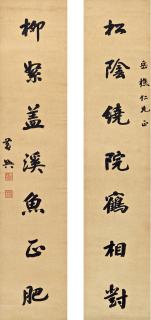 岳樵仁兄正
松陰繞院鶴相對
柳絮蓋溪魚正肥
黃興